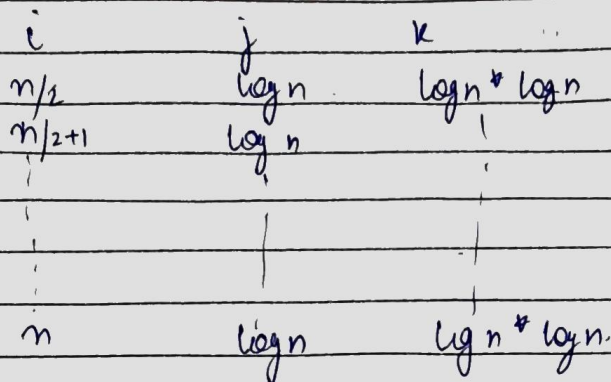 i j k
n/2 log n log n * log n
n/2+1 log n
n log n log n * log n.